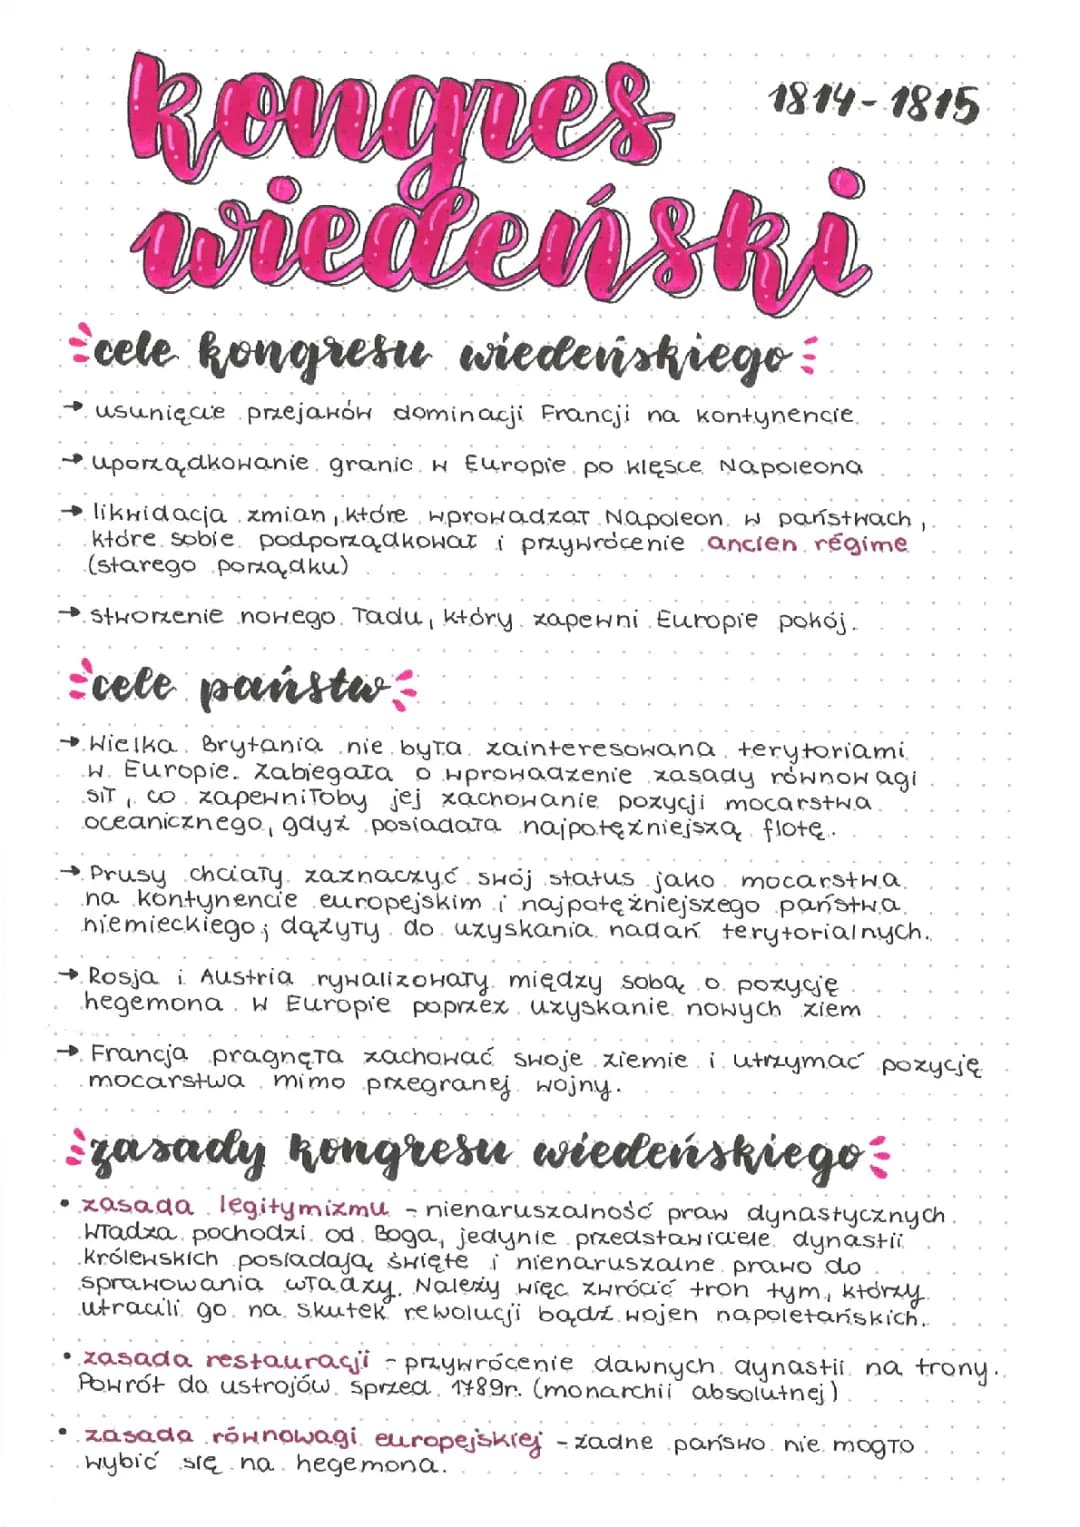 kongres
1814-1815
wiedeński
cele kongresu wiedeńskiego
→ usunięcie przejawów dominacji Francji na kontynencie.
→ uporządkowanie granic w Europie po klęsce Napoleona
→ likwidacja zmian, które wprowadzał Napoleon w państwach,
które sobie podporządkował i przywrócenie ancien régime
(starego porządku)
→ stworzenie nowego ładu, który zapewni Europie pokój.
cele państw
→ Wielka Brytania nie była zainteresowana terytoriami
w Europie. Zabiegała o wprowadzenie zasady równowagi
sił, co zapewniłoby jej zachowanie pozycji mocarstwa
oceanicznego, gdyż posiadała najpotężniejszą flotę.
→ Prusy chciały zaznaczyć swój status jako mocarstwa
na kontynencie europejskim i najpotężniejszego państwa
niemieckiego; dążyły do uzyskania nadań terytorialnych.
→ Rosja i Austria rywalizowały między sobą o pozycję
hegemona w Europie poprzez uzyskanie nowych ziem
→ Francja pragnęła zachować swoje ziemie i utrzymać pozycję
mocarstwa mimo przegranej wojny.
zasady kongresu wiedeńskiego
• zasada legitymizmu - nienaruszalność praw dynastycznych.
Władza pochodzi od Boga, jedynie przedstawiciele dynastii
królewskich posiadają święte i nienaruszalne prawo do
sprawowania władzy. Należy więc zwrócić tron tym, którzy
utracili go na skutek rewolucji bądź wojen napoletańskich.
• zasada restauracji - przywrócenie dawnych dynastii na trony.
Powrót do ustrojów sprzed 1789r. (monarchii absolutnej)
• zasada równowagi europejskiej - żadne państwo nie mogło
wybić się na hegemona.